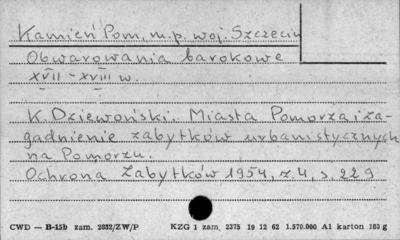 Kamień Pom., m.p. woj. Szczecin
Obwarowania barokowe
XVII - XVIII w.
K. Dziewoński. Miasta Pomorza i za-
gadnienie zabytków urbanistycznych
na Pomorzu.
Ochrona Zabytków 1954, z 4, s. 229
CWD — B-15b zam. 2032/ZW/P KZG 1 zam. 2375 19 12 62 1.570.000 A1 karton 180 g